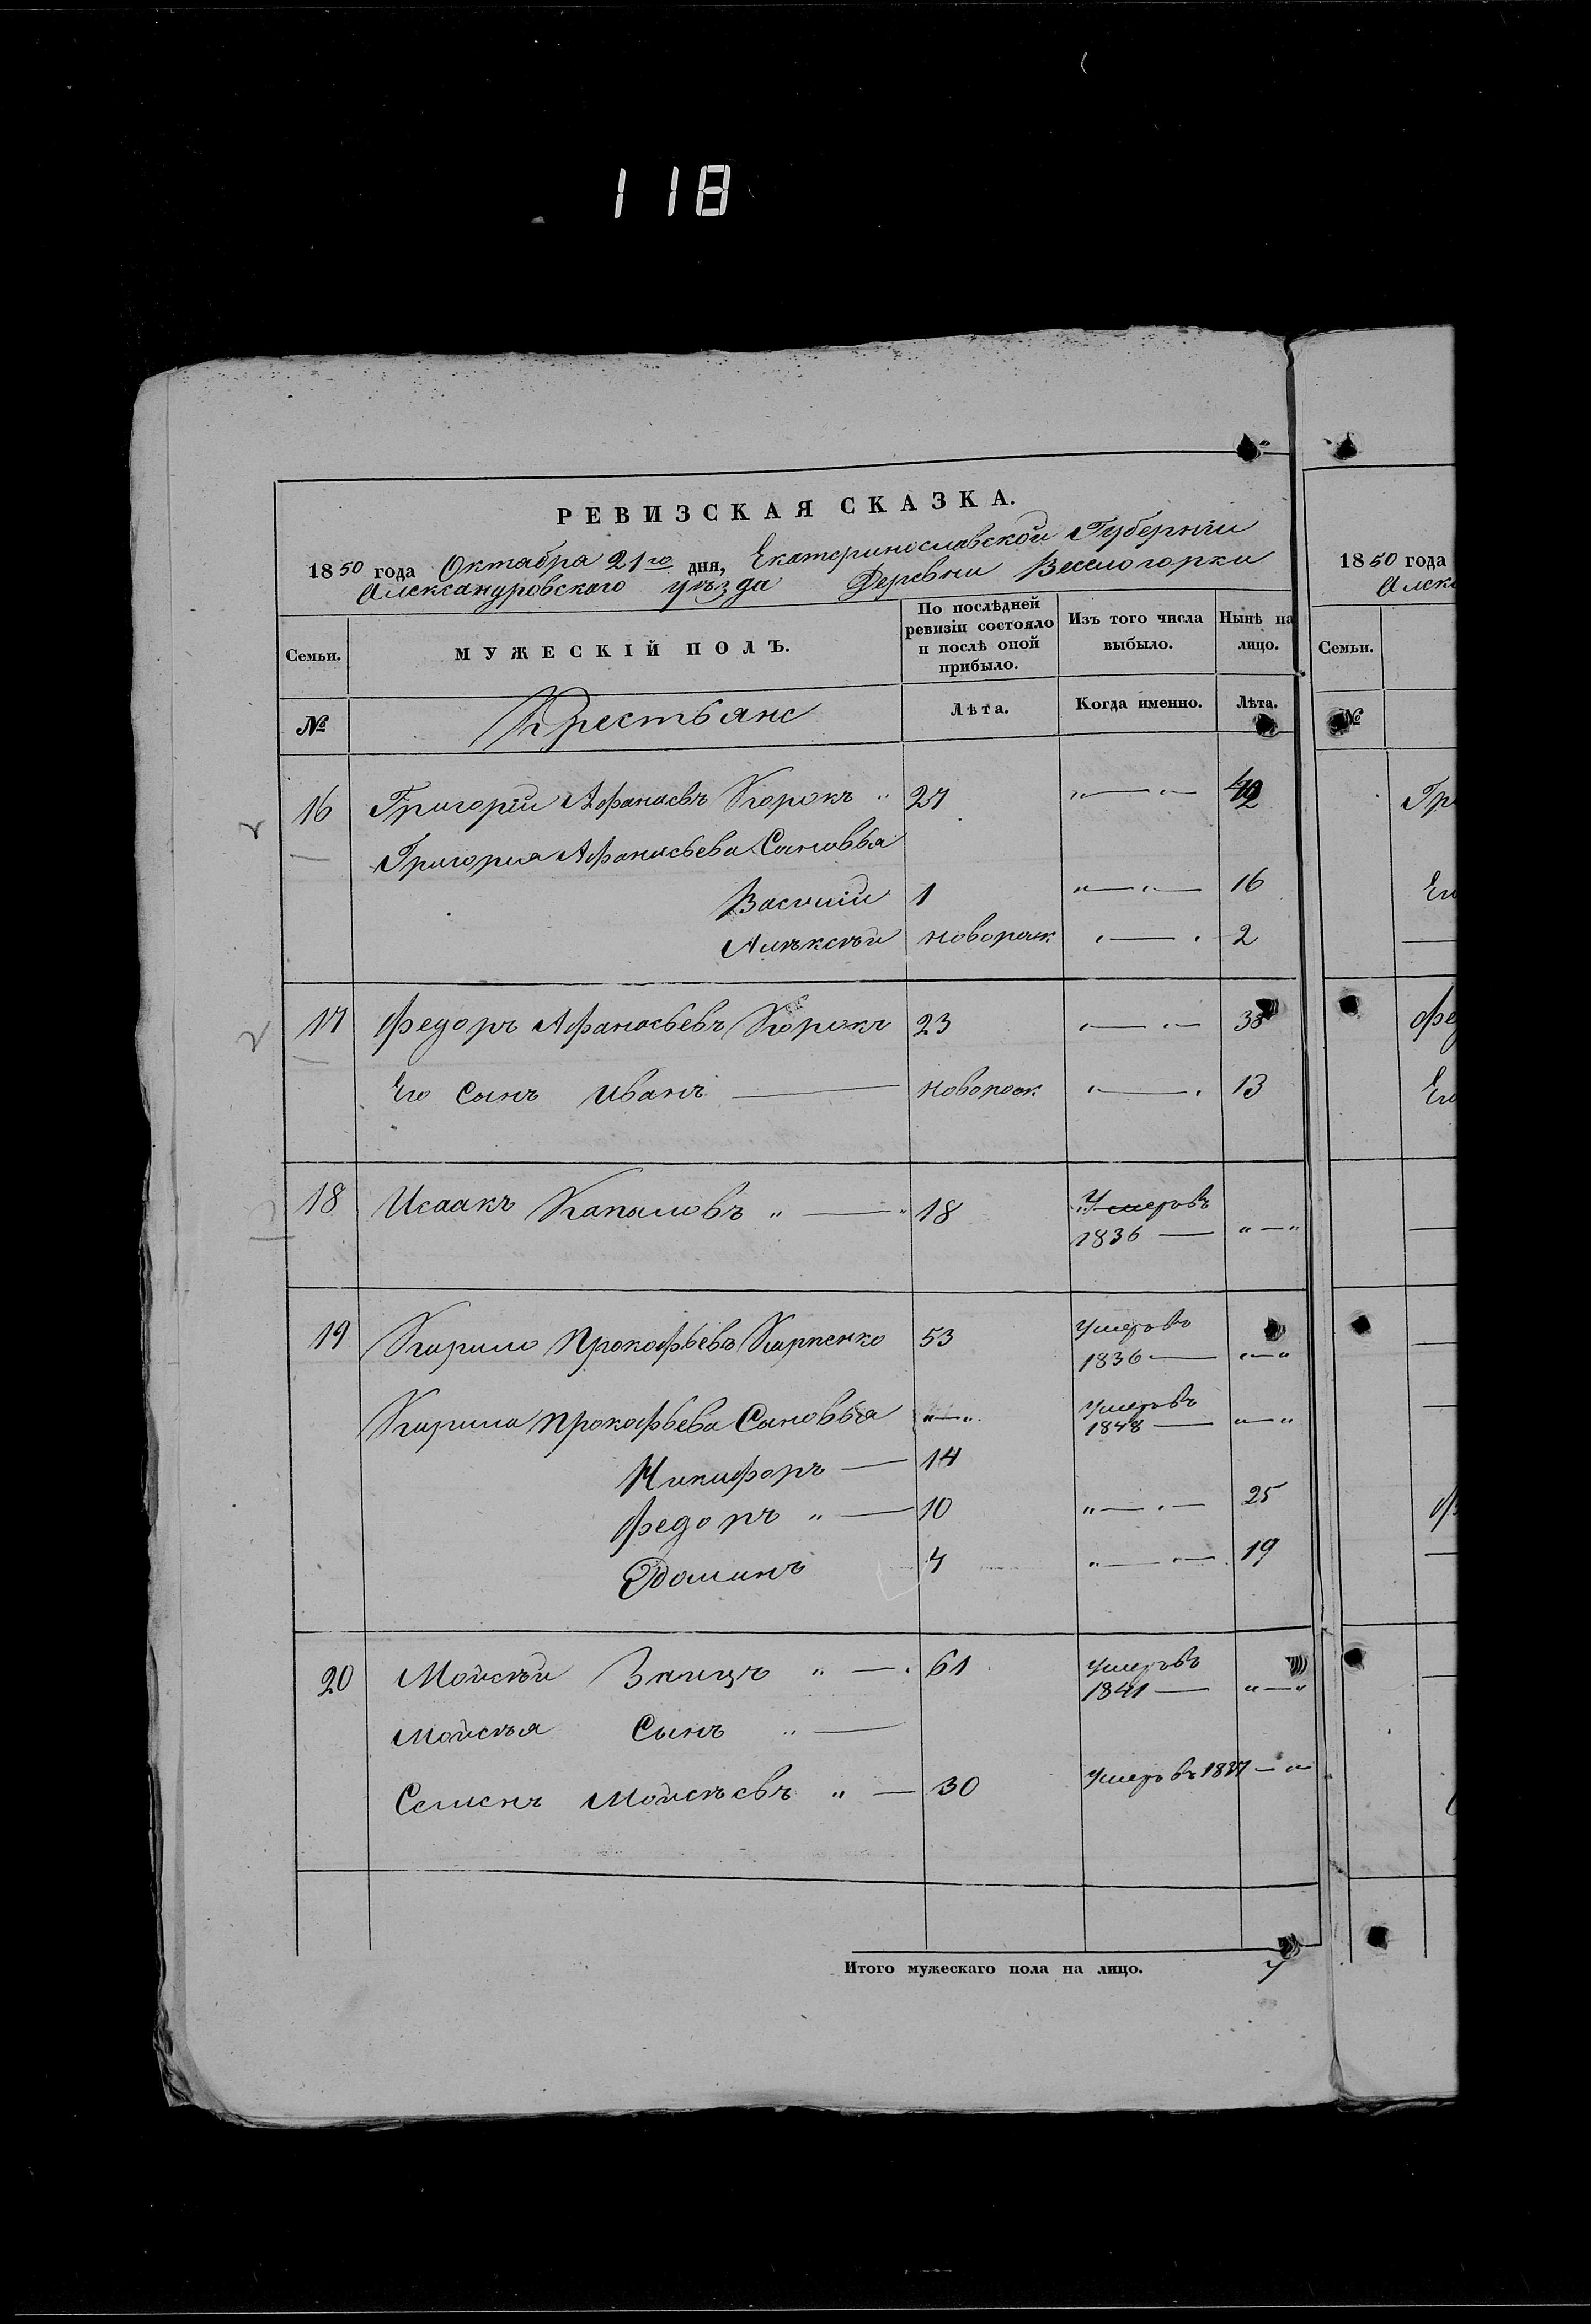 118
РЕВИЗСКАЯ СКАЗКА.
1850 года Октября 21го дня, Екатеринославской Губерніи
Александровского уѣзда Деревни Веселогорки
Семьи. МУЖЕСКІЙ ПОЛЪ. По послѣдней ревизіи состояло и послѣ оной прибыло. Изъ того числа выбыло. Нынѣ на лицо.
№ Крестьяне Лѣта. Когда именно. Лѣта.
16 Григорій Афанасьевъ Корокъ " 27 "—"— 42
Григорія Афанасьева Сыновья
Василій 1 "—"— 16
Алѣксѣй новорож "—" 2
17 Федоръ Афанасьевъ Корокъ 23 "—"— 38
Его Сынъ Иванъ — новорож "—" 13
18 Исаакъ Капаловъ "—" 18 Умеръ въ
1836 — "—"
19 Кирило Прокофьевъ Карпенко 53 Умеръ въ
1836 — "—"
Кирила Прокофьева Сыновья "—" Умеръ въ
1848 — "—"
Никифоръ — 14
Федоръ "— 10 "—"— 25
Доминъ 4 "—"— 19
20 Мойсѣй Заицъ "—" 61 Умеръ въ
1841 — "—"
Мойсѣя Сынъ "—
Семенъ Мойсѣевъ "— 30 Умеръ въ 1837 —"—
Итого мужескаго пола на лицо. 7
1850 года
Алекс
Семьи.
№
Гр
Ег
Фед
Ег